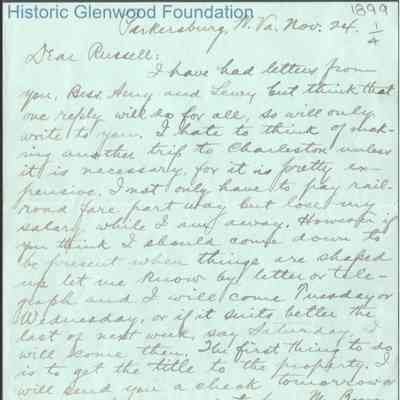 Historic Glenwood Foundation
1899
1/4
Parkersburg, W. Va. Nov. 24.
Dear Russell:
I have had letters from
you, Bess, Amy and Lewy but think that
one reply will do for all, so will only
write to you. I hate to think of mak-
ing another trip to Charleston unless
it is necessary, for it is pretty ex-
pensive. I not only have to pay rail-
road fare part way but lose my
salary while I am away. However if
you think I should come down to
be present when things are shaped
up let me know by letter or tele-
graph and I will come Tuesday or
Wednesday, or if it suits better the
last of next week, say Saturday, I
will come then. The first thing to do
is to get the title to the property. I
will send you a check tomorrow or